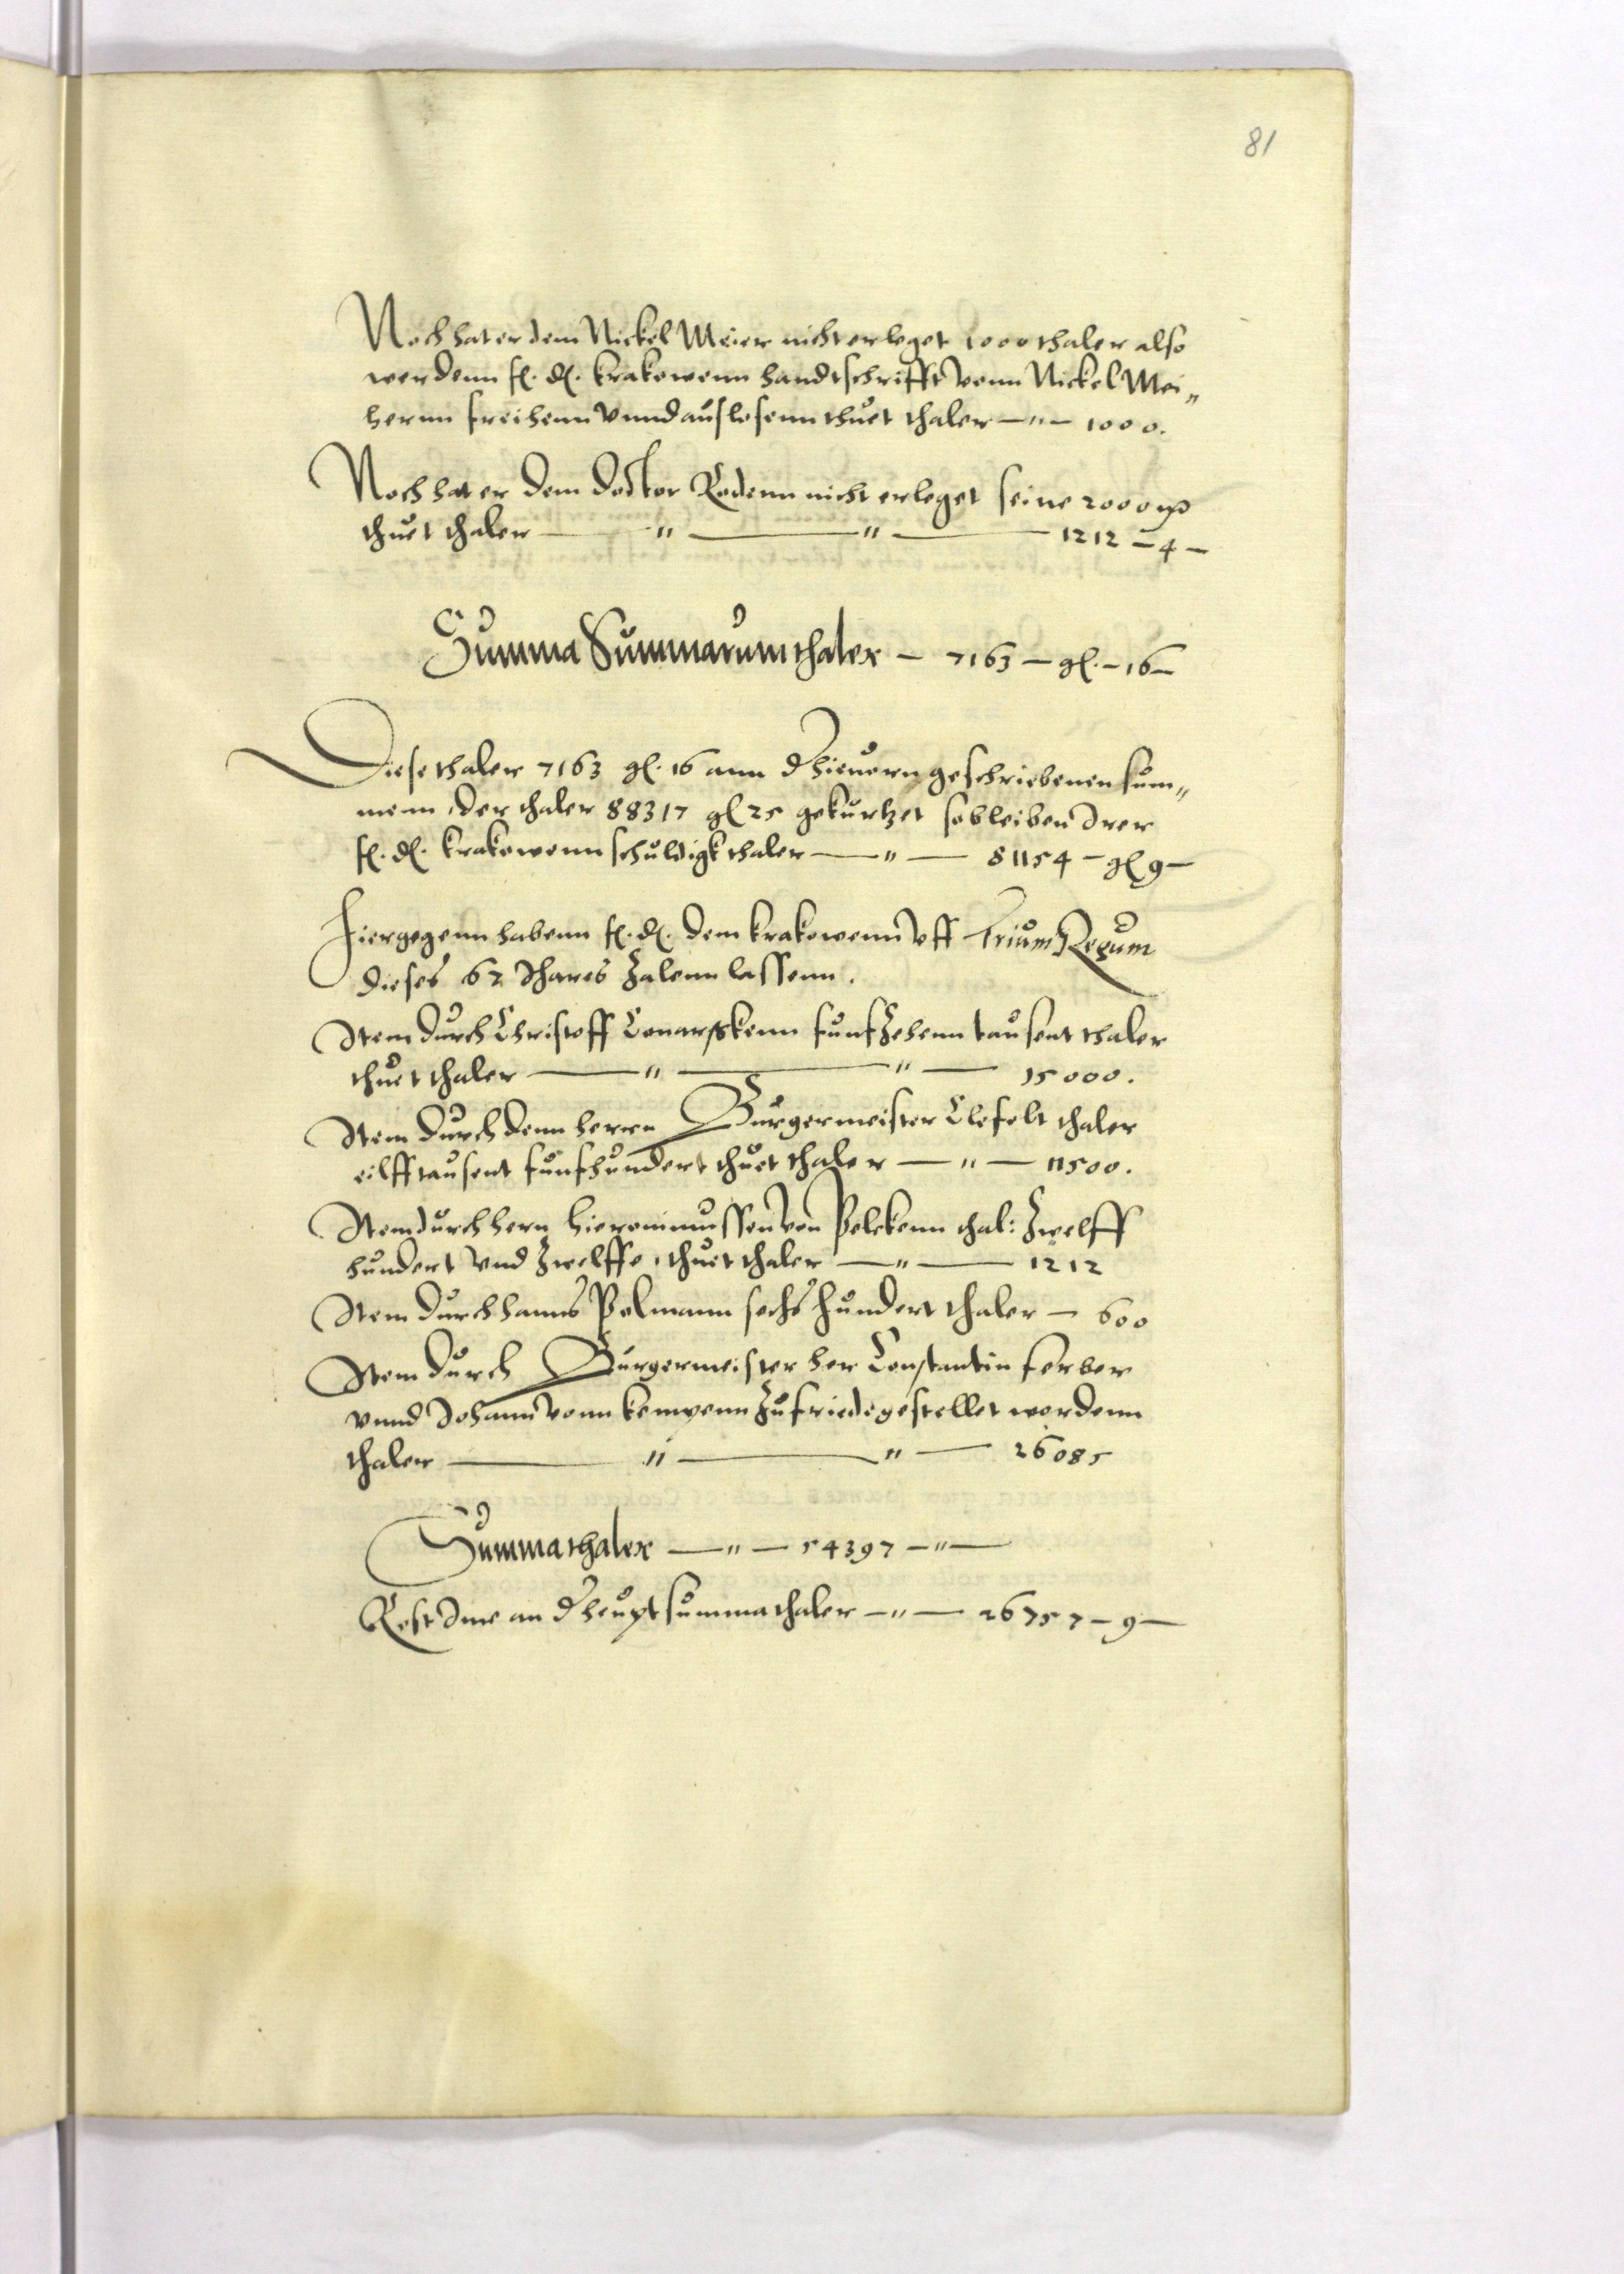 81
Noch hat er dem Nickel Meier nicht erleget 1000 thaler also
werdenn f. d. Krakowenn handtschrifft vonn Nickel Mei„
hernn freihenn vnnd auslosenn thuet thaler —"— 1000.
Noch hat er dem Doctor Rodenn nicht erleget seine 2000
thuet thaler — " — " — 1212 — 4 —
Summa Summarum thaler — 7163 — gl. — 16 —
Diese thaler 7163 gl. 16 ann geschriebenen sum„
menn, der thaler 88317 gl 25 gekurtzet so bleiben
f. d. Krakowenn schuldigk thaler — " — 81154 — gl 9 —
Hiergegenn habenn f. d. dem Krakowenn vff Trium Regum
dieses 62 Jhares Zalenn lassenn.
Item durch Christoff Conarskenn funfzehenn tausent thaler
thuet thaler — " — " — 15000.
Item durch denn herrn Burgermeister Clefelt thaler
eilfftausent funfhundert thuet thaler — " — 11500.
Item durch hern hieronimussen von Pelckenn thal: Zwelff
hundert vnd Zwelffe, thuet thaler — " — 1212
Item durch hanns Polmann sechs hundert thaler — 600
Item durch Burgermeister her Constantin ferber
vnnd Johann vonn kempenn Zufriede gestellet wordenn
thaler — " — " — 26085
Summa thaler — " — 54397 — " —
Rest Ime an d'heuptsumma thaler — " — 26757 — 9 —